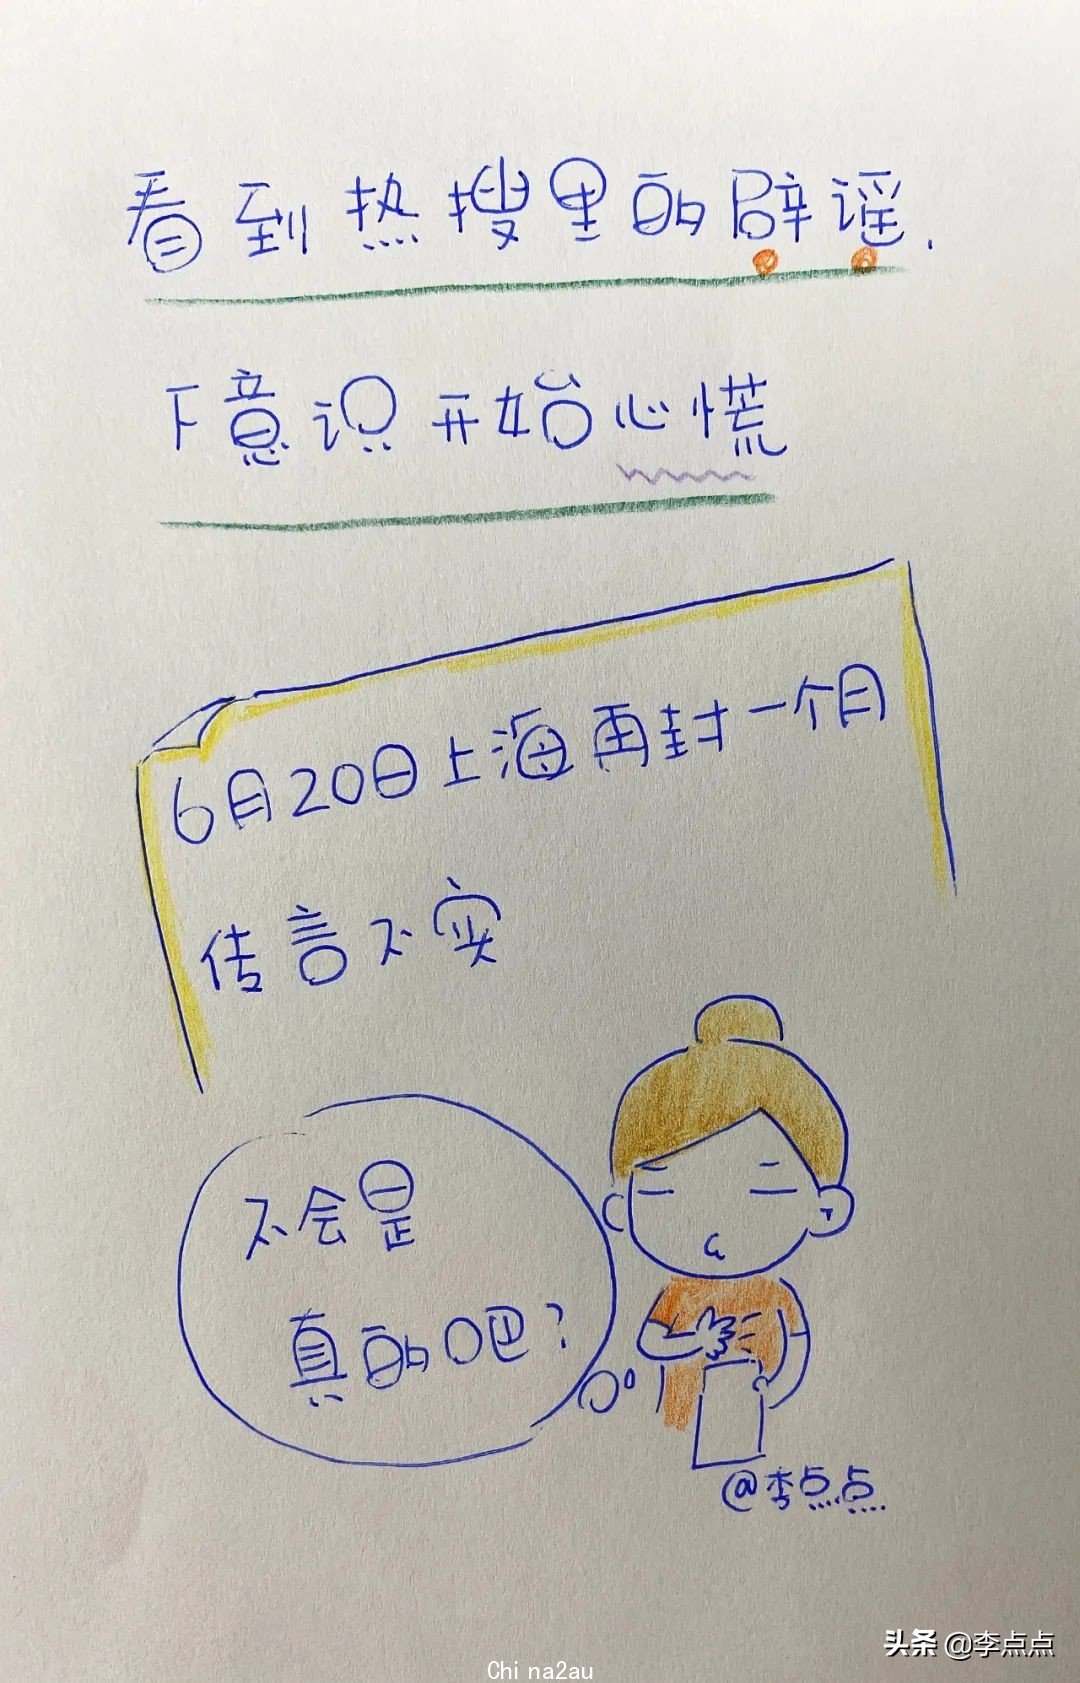 看到热搜里的辟谣.
下意识开始心慌
6月20日上海再封一个月
传言不实
不会是
真的吧?
@李点点
头条 @李点点
China2au